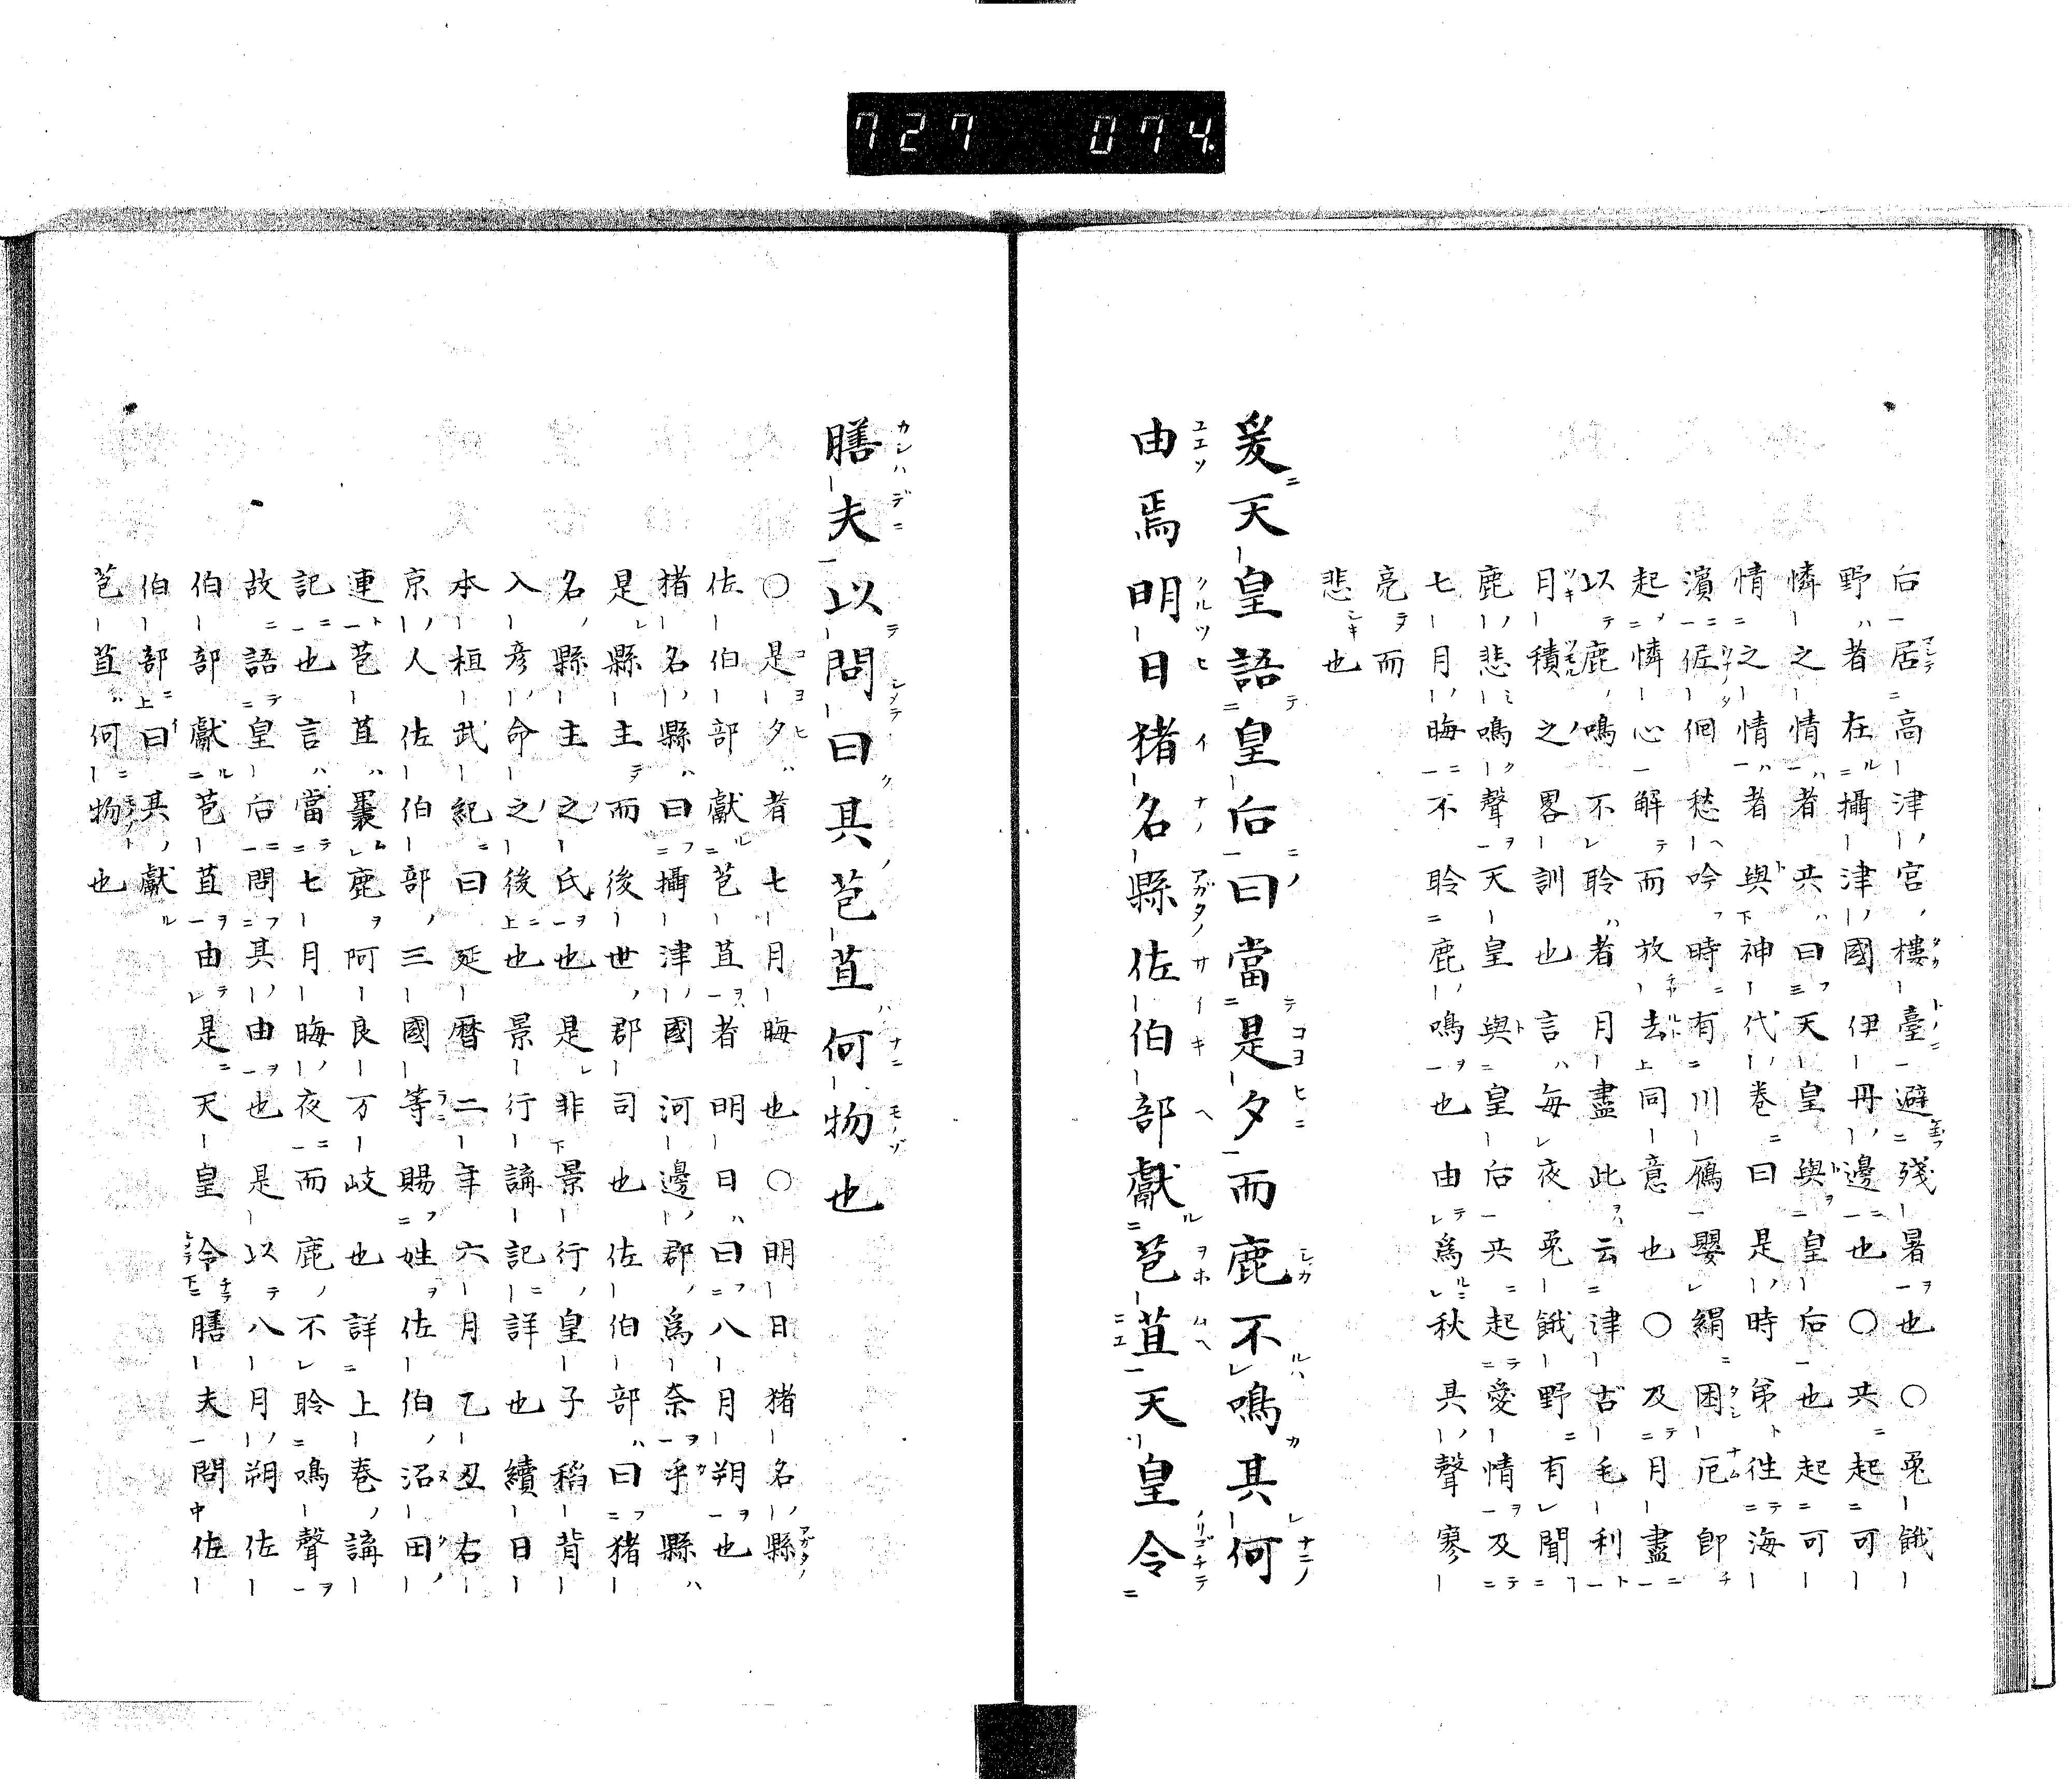 727 074.
后居高津宮樓臺避殘暑也○菟餓
野者在攝津國伊丹邊也○共起可
憐之情者共曰天皇與皇后也起可
情之情者與神代卷曰是時弟往海
濱低佪愁吟時有川鴈嬰羂困厄卽
起憐心解而放去同意也○及月盡
以鹿鳴不聆者月盡此云津古毛利
月積之畧訓也言每夜菟餓野有聞
鹿悲鳴聲天皇與皇后共起愛情及
七月晦不聆鹿鳴也由爲秋其聲寥
亮而
悲也
爰天皇語皇后曰當是夕而鹿不鳴其何
由焉明日猪名縣佐伯部獻苞苴天皇令
膳夫以問曰其苞苴何物也
○是夕者七月晦也○明日猪名縣
佐伯部獻苞苴者明日曰八月朔也
猪名縣曰攝津國河邊郡爲奈乎縣
是縣主而後世郡司也佐伯部曰猪
名縣主之氏也是非景行皇子稻背
入彥命之後也景行講記詳也續日
本桓武紀曰延曆二年六月乙丑右
京人佐伯部三國等賜姓佐伯沼田
連苞苴裹鹿阿良万岐也詳上卷講
記也言當七月晦夜而鹿不聆鳴聲
故語皇后問其由也是以八月朔佐
伯部獻苞苴由是天皇令膳夫問佐
伯部曰其獻
苞苴何物也